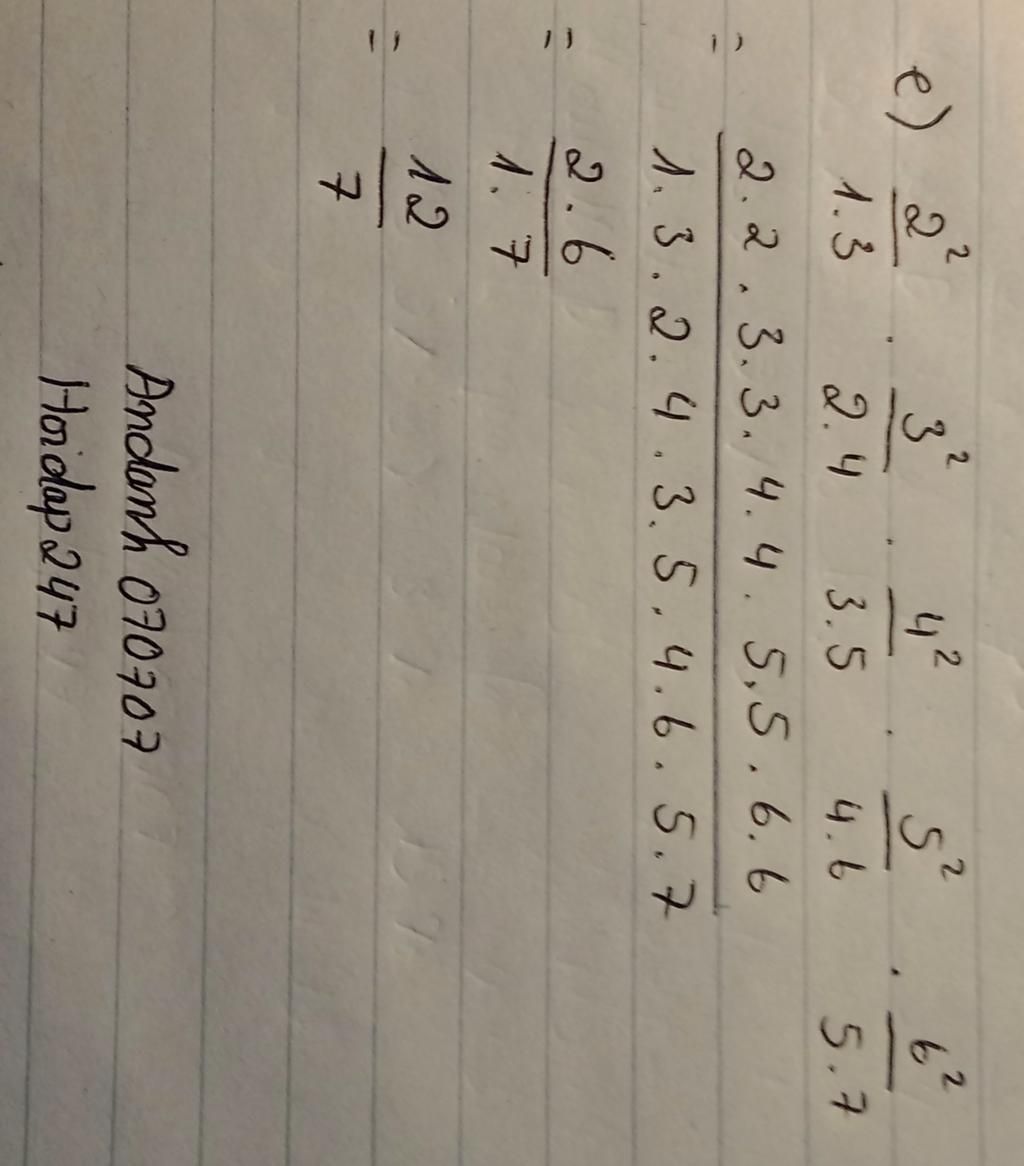 e) 2² . 3² . 4² . 5² . 6²
1.3 2.4 3.5 4.6 5.7
= 2.2.3.3.4.4.5.5.6.6
1.3.2.4.3.5.4.6.5.7
= 2.6
1.7
= 12
7
Andanh070707
Hoidap247